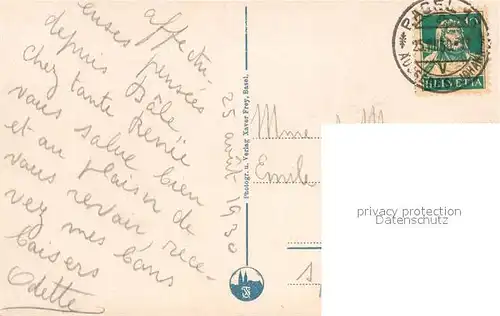 affectu-
euses pensées
depuis Bâle
chez tante Renée
vous salue bien
et au plaisir de
vous revoir, rece-
vez mes bons
baisers
Odette
25 août 1930
Photogr. u. Verlag Xaver Frey, Basel.
BASEL
HELVETIA
Mme
Emile
privacy protection
VDM